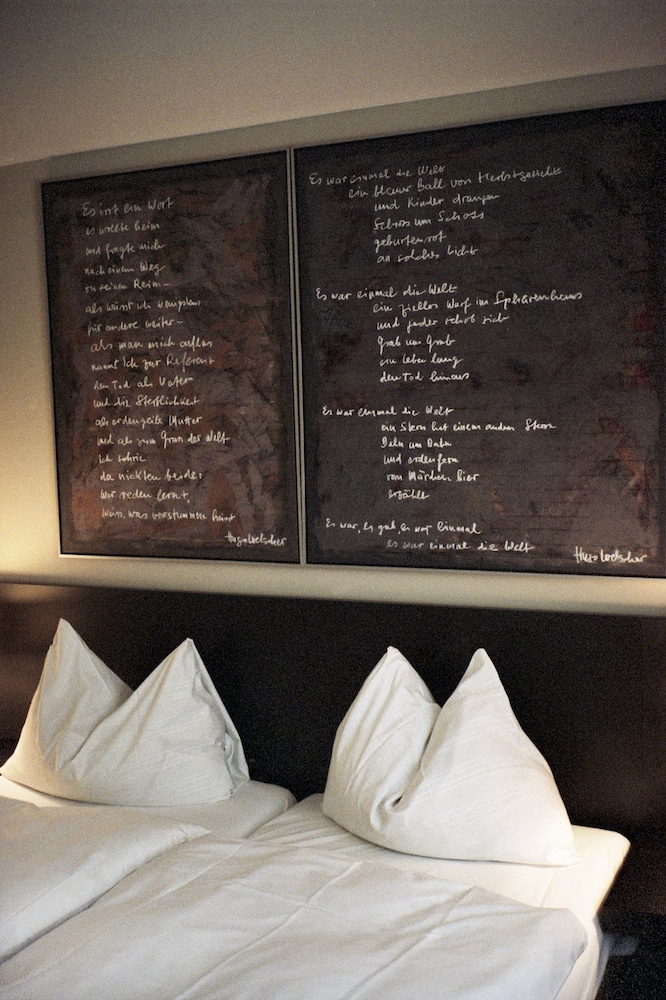 Es irrt ein Wort
es wollte heim
und fragte mich
nach einem Weg
zu seinem Reim –
als wüsst ich wenigstens
für andere weiter –
als man mich auflas
nannt ich zur Referenz
den Tod als Vater
und die Sterblichkeit
als erdengeile Mutter
und als zum Gruss der Welt
ich schrie
da nickten beide:
wer reden lernt,
weiss, was verstummen heisst
Hugo Loetscher
Es war einmal die Welt
ein blauer Ball von Herbstgesicht
und Kinder drangen
Schoss um Schoss
geburtenrot
an solches Licht
Es war einmal die Welt
ein ziellos Wurf im Sphärenhaus
und jeder schob sich
Grab um Grab
ein Leben lang
den Tod hinaus
Es war einmal die Welt
ein Stern hat einem andern Stern
Bahn um Bahn
und erdenfern
vom Märchen hier
erzählt
Es war, es gab, es war einmal
es war einmal die Welt
Hugo Loetscher